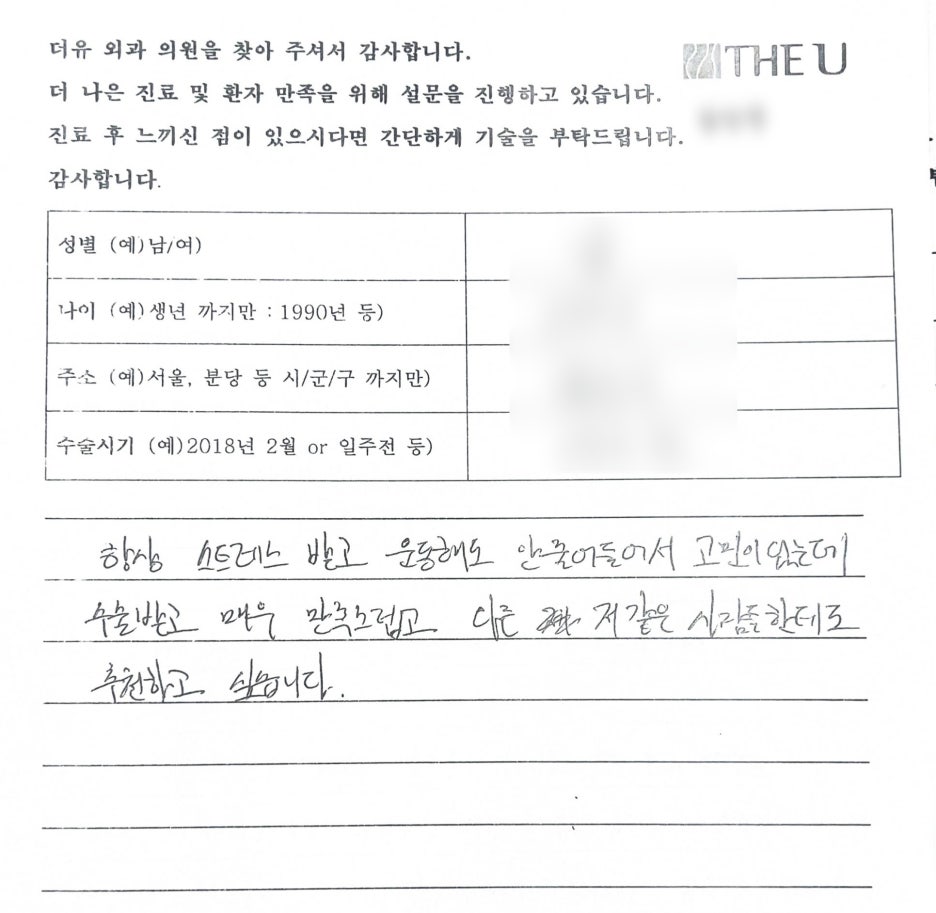 더유 외과 의원을 찾아 주셔서 감사합니다.
THE U
더 나은 진료 및 환자 만족을 위해 설문을 진행하고 있습니다.
진료 후 느끼신 점이 있으시다면 간단하게 기술을 부탁드립니다.
감사합니다.
성별 (예)남/여)
나이 (예)생년 까지만 : 1990년 등)
주소 (예)서울, 분당 등 시/군/구 까지만)
수술시기 (예)2018년 2월 or 일주전 등)
항상 스트레스 받고 운동해도 안줄어들어서 고민이었는데
수술받고 매우 만족스럽고 다른 저 같은 사람들한테도
추천하고 싶습니다.